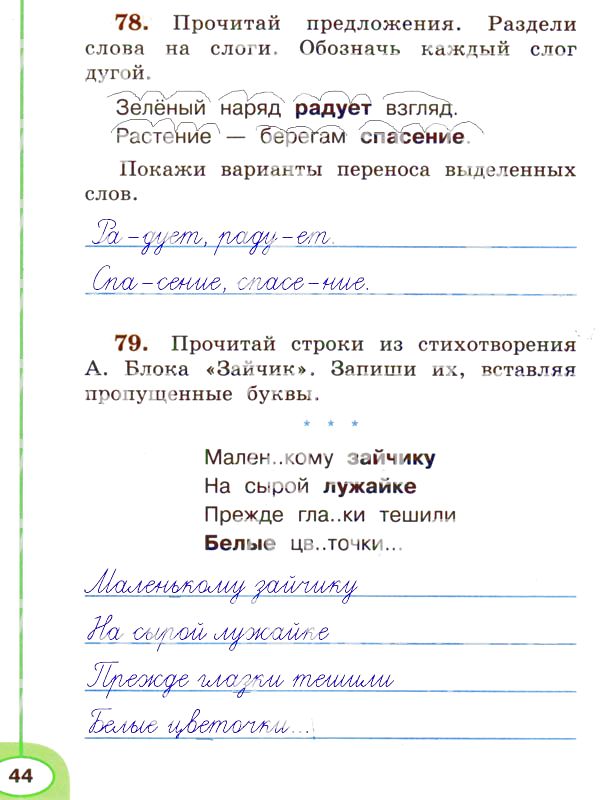 78. Прочитай предложения. Раздели
слова на слоги. Обозначь каждый слог
дугой.
Зелёный наряд радует взгляд.
Растение — берегам спасение.
Покажи варианты переноса выделенных
слов.
Ра-дует, раду-ет.
Спа-сение, спасе-ние.
79. Прочитай строки из стихотворения
А. Блока «Зайчик». Запиши их, вставляя
пропущенные буквы.
* * *
Мален..кому зайчику
На сырой лужайке
Прежде гла..ки тешили
Белые цв..точки...
Маленькому зайчику
На сырой лужайке
Прежде глазки тешили
Белые цветочки...
44